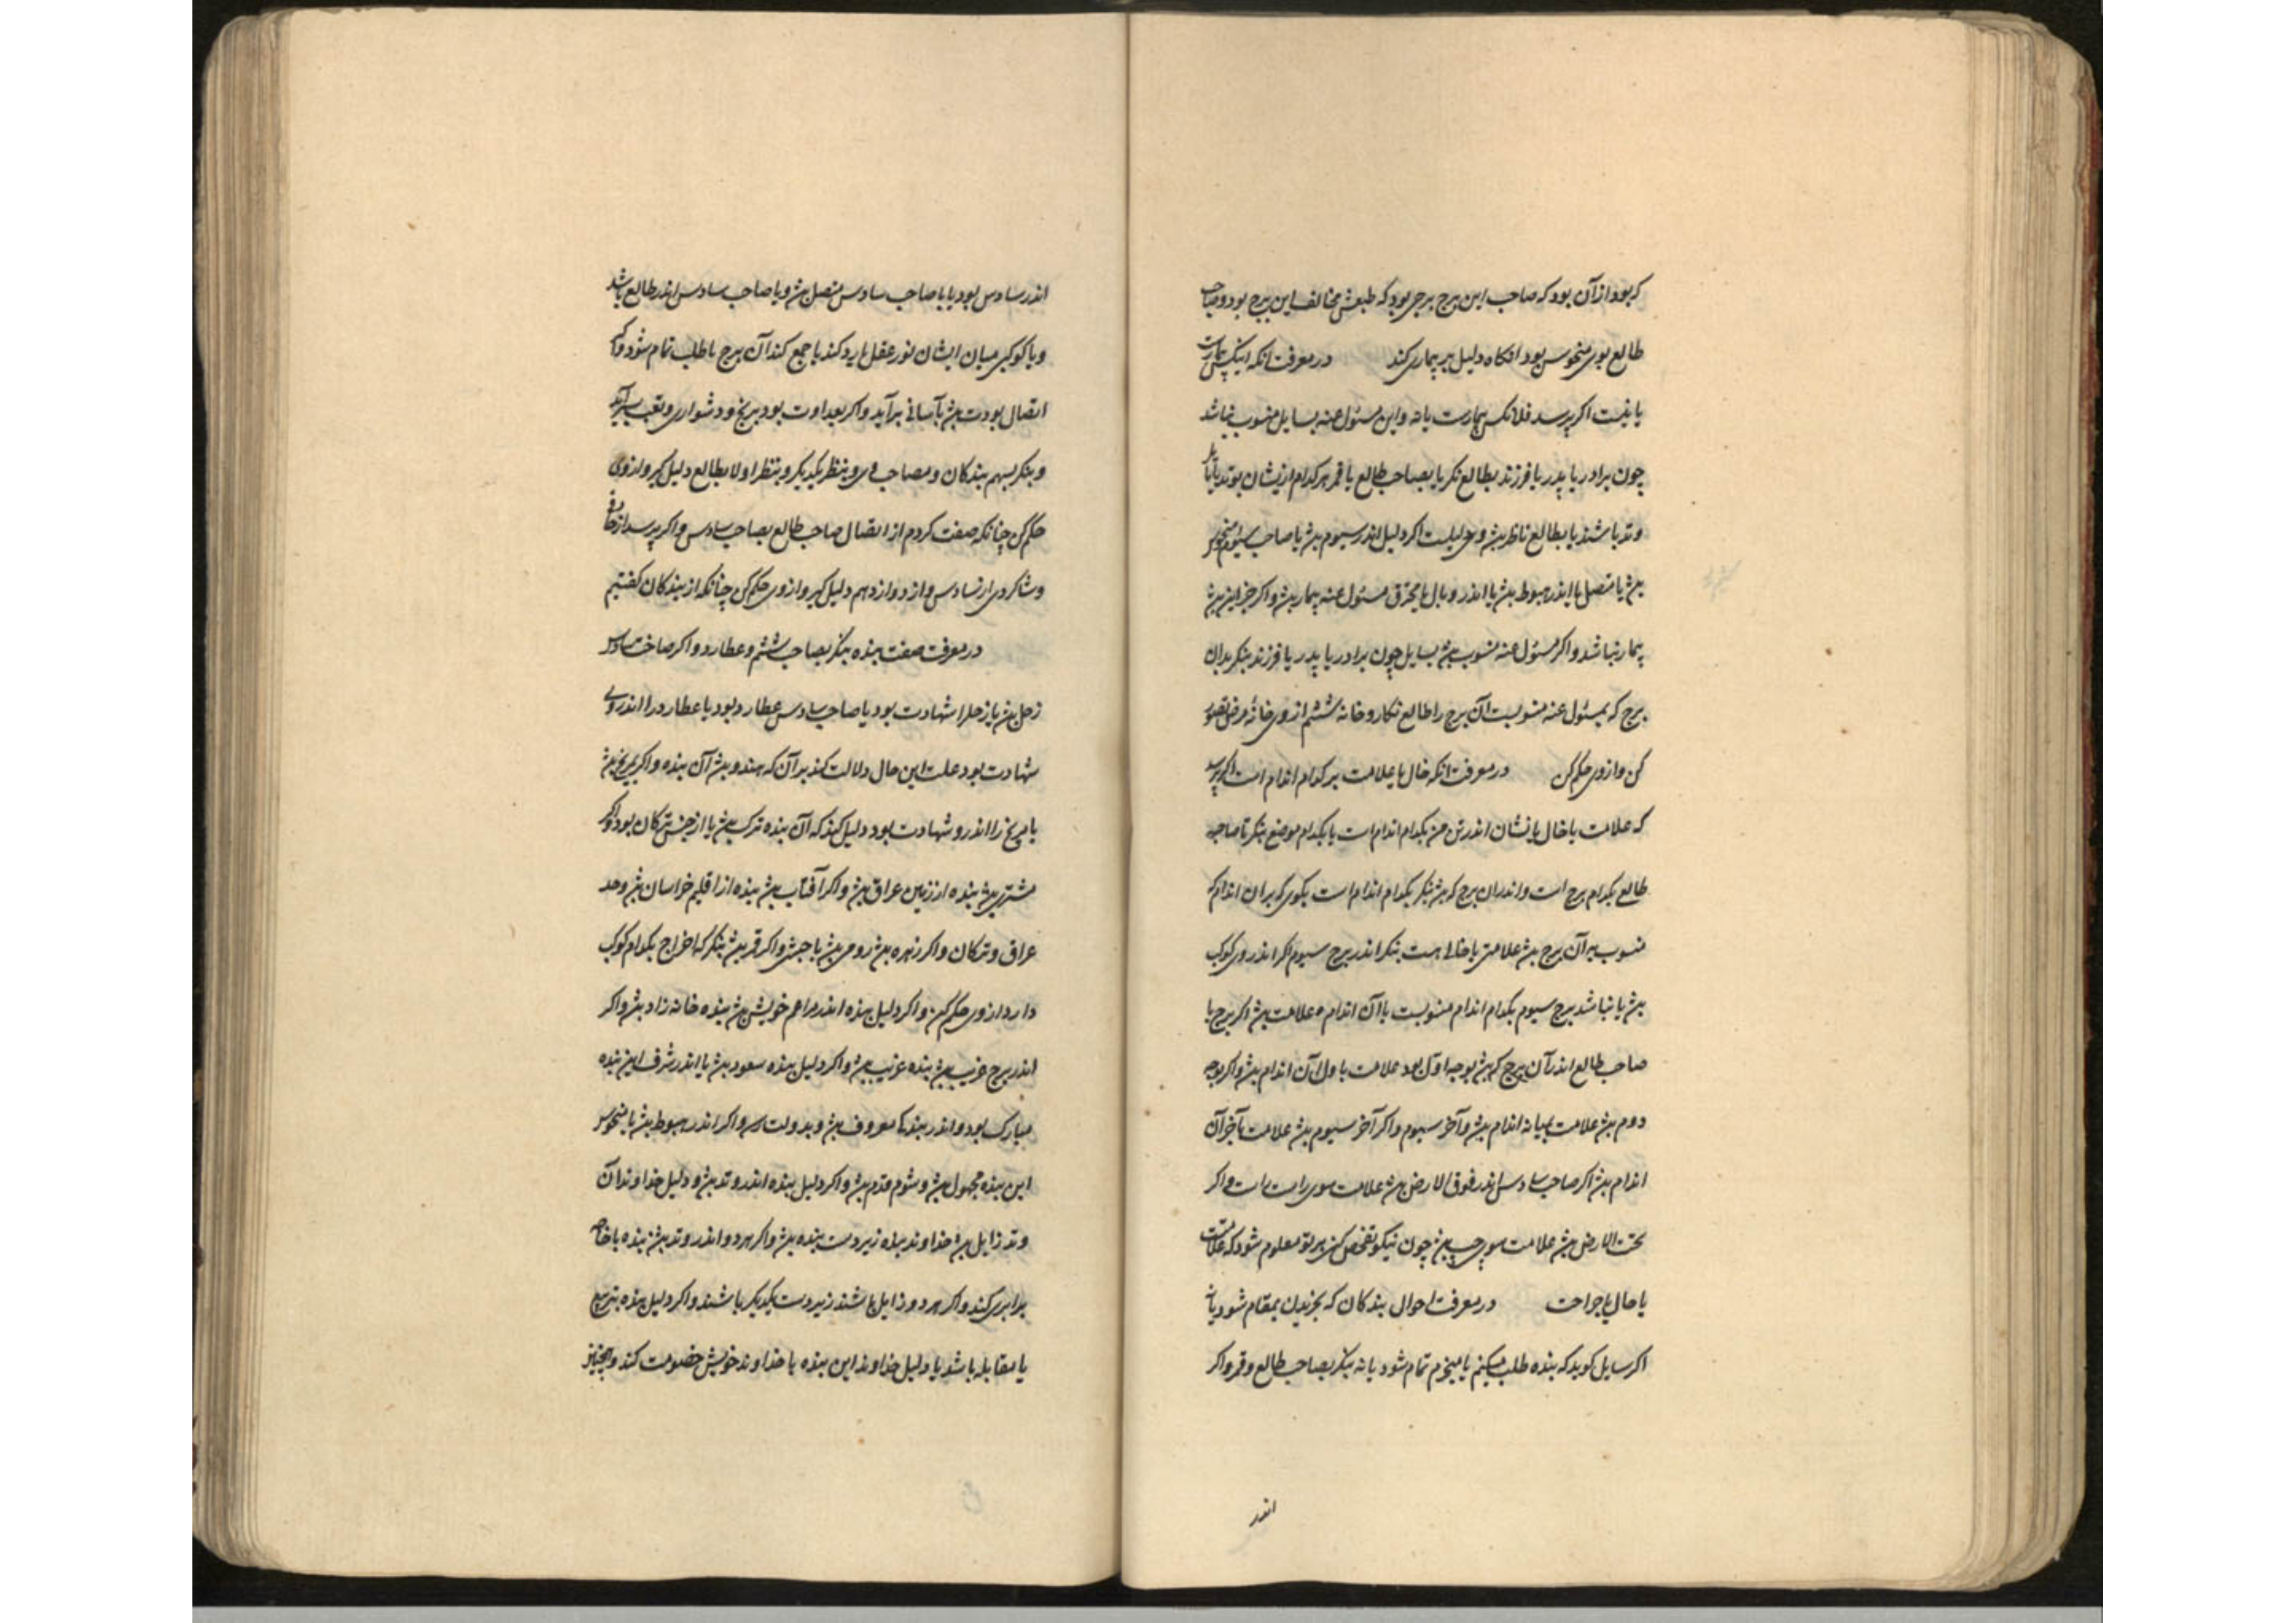 که بود از آن بود که صاحب این برج برجی بود که طبعش مخالف این برج بود و صاحب
طالع بوی منحوس بود انکاه دلیل بر بیماری کند در معرفت انکه اینکس بیمارست
یا نیست اکر پرسد فلانکس بیمارست یا نه و این مسئول عنه بسایل منسوب نباشد
چون برادر یا پدر یا فرزند بطالع نکر یا بصاحب طالع یا قمر هر کدام ازیشان بوتد یا مایل
وتد باشند یا بطالع ناظر بش وی دلیلست اکر دلیل اندر سیوم بش یا صاحب سیوم منحوس
بش یا متصل یا اندر هبوط بش یا اندر وبال یا محترق مسئول عنه بیمار بش و اکر جز این بش
بیمار نباشد و اکر مسئول عنه منسوب بش بسایل چون برادر یا پدر یا فرزند بنکر بدان
برج که بمسئول عنه منسوبست آن برج را طالع نکار و خانه ششم از وی خانه مرض تصور
کن و از وی حکم کن در معرفت انکه خال یا علامت بر کدام اندام است اکر پرسد
که علامت یا خال یا نشان اندر تن من بکدام اندام است یا بکدام موضع بنکر تا صاحب
طالع بکدام برج است و اندران برج که بش بنکر بکدام اندام است بکوی که بران اندام که
منسوب بر آن برج بش علامتی یا خالی هست بنکر اندر برج سیوم اکر اندر وی کوکب
بش یا نباشد برج سیوم بکدام اندام منسوبست با آن اندام ه علامت بش اکر برج با
صاحب طالع اندر آن برج که بش بوجه اول بود علامت باول آن اندام بش و اکر بوجه
دوم بش علامت بمیانه اندام بش و آخر سیوم و اکر آخر سیوم بش علامت بآخر آن
اندام بش اکر صاحب سادس اندر فوق الارض بش علامت سوی راست است و اکر
تحت الارض بش علامت سوی چپ بش چون نیکو تفحص کنی بر تو معلوم شود که علامتست
یا خال یا جراحت در معرفت احوال بندکان که بخریدن بمقام شود یا نه
اکر سایل کوید که بنده طلب میکنم یا میخرم تمام شود یا نه بنکر بصاحب طالع و قمر و اکر
اندر
اندر سادس بود یا با صاحب سادس متصل بش و یا صاحب سادس اندر طالع باشد
و یا کوکبی میان ایشان نور عقل یا رد کند یا جمع کند آن برج با طلب تمام شود و اکر
اتصال بودت بش بآسانی برآید و اکر بعداوت بود برنج و دشواری و تعب برآید
و بنکر بسهم بندکان و بصاحب وی و بنظر یکدیکر و بنظر اولا بطالع دلیل کیر و از وی
حکم کن چنانکه صفت کردم از اتصال صاحب طالع بصاحب سادس و اکر پرسد از
و شاکردی از سادس و از دوازدهم دلیل کیر و از وی حکم کن چنانکه از بندکان کفتیم
در معرفت صفت بنده بنکر بصاحب ششم و عطارد و اکر صاحب سادس
زحل بش یا زحلرا شهادت بود یا صاحب سادس عطارد بود یا عطارد را اندر وی
شهادت بود علت این حال دلالت کند بر آن که هندو بش آن بنده و اکر مریخ بش
یا مریخ را اندر و شهادت بود دلیل کند که آن بنده ترک بش یا از جنس ترکان بود و اکر
مشتری بش بنده از زمین عراق بش و اکر آفتاب بش بنده از اقلیم خراسان بش و حد
عراق و ترکان و اکر زهره بش رومی بش یا حبشی و اکر قمر بش بنکر که اخراج بکدام کوکب
دارد از وی حکم کن و اکر دلیل بنده اندر مزاعم خویش بش بنده خانه زاد بش و اکر
اندر برج غریب بش بنده غریب بش و اکر دلیل بنده سعود بش یا اندر شرف این بنده
مبارک بود و اندر بندکی معروف بش و بدولت رسد و اکر اندر هبوط بش یا منحوس
این بنده مجهول بش و شوم قدم بش و اکر دلیل بنده اندر وتد بش و دلیل خداوند آن
وتد زایل بش خداوند بنده زیردست بنده بش و اکر هر دو اندر وتد بش بنده با خواجه
برابری کند و اکر هر دو زایل باشند زیردست یکدیکر باشند و اکر دلیل بنده بتربیع
یا مقابله باشد یا دلیل خداوند این بنده با خداوند خویش خصومت کند و همچنین